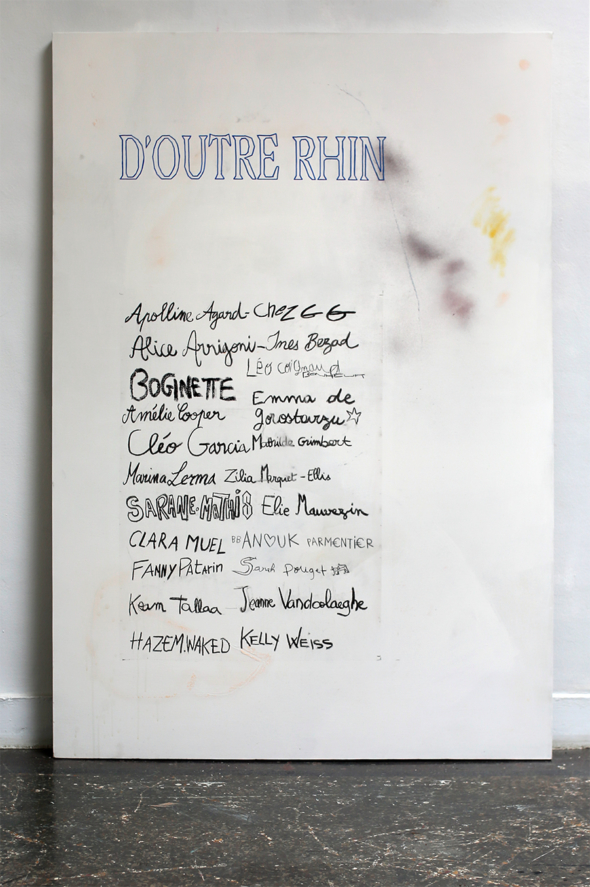 D'OUTRE RHIN
Apolline Azard - Chez GG
Alice Arrigoni - Ines Bezad
Léo
BOGINETTE Emma de
Amélie Cooper gorostarzu
Cléo Garcia Mathilde Grimbert
Marina Lerma Zilia Marquet - Ellis
SARANE-MATHIS Elie Mauvezin
CLARA MUEL BB ANOUK PARMENTIER
FANNY PATARIN Sarah Pouget
Team Tallaa Jeanne Vandoolaeghe
HAZEM.WAKED KELLY WEISS